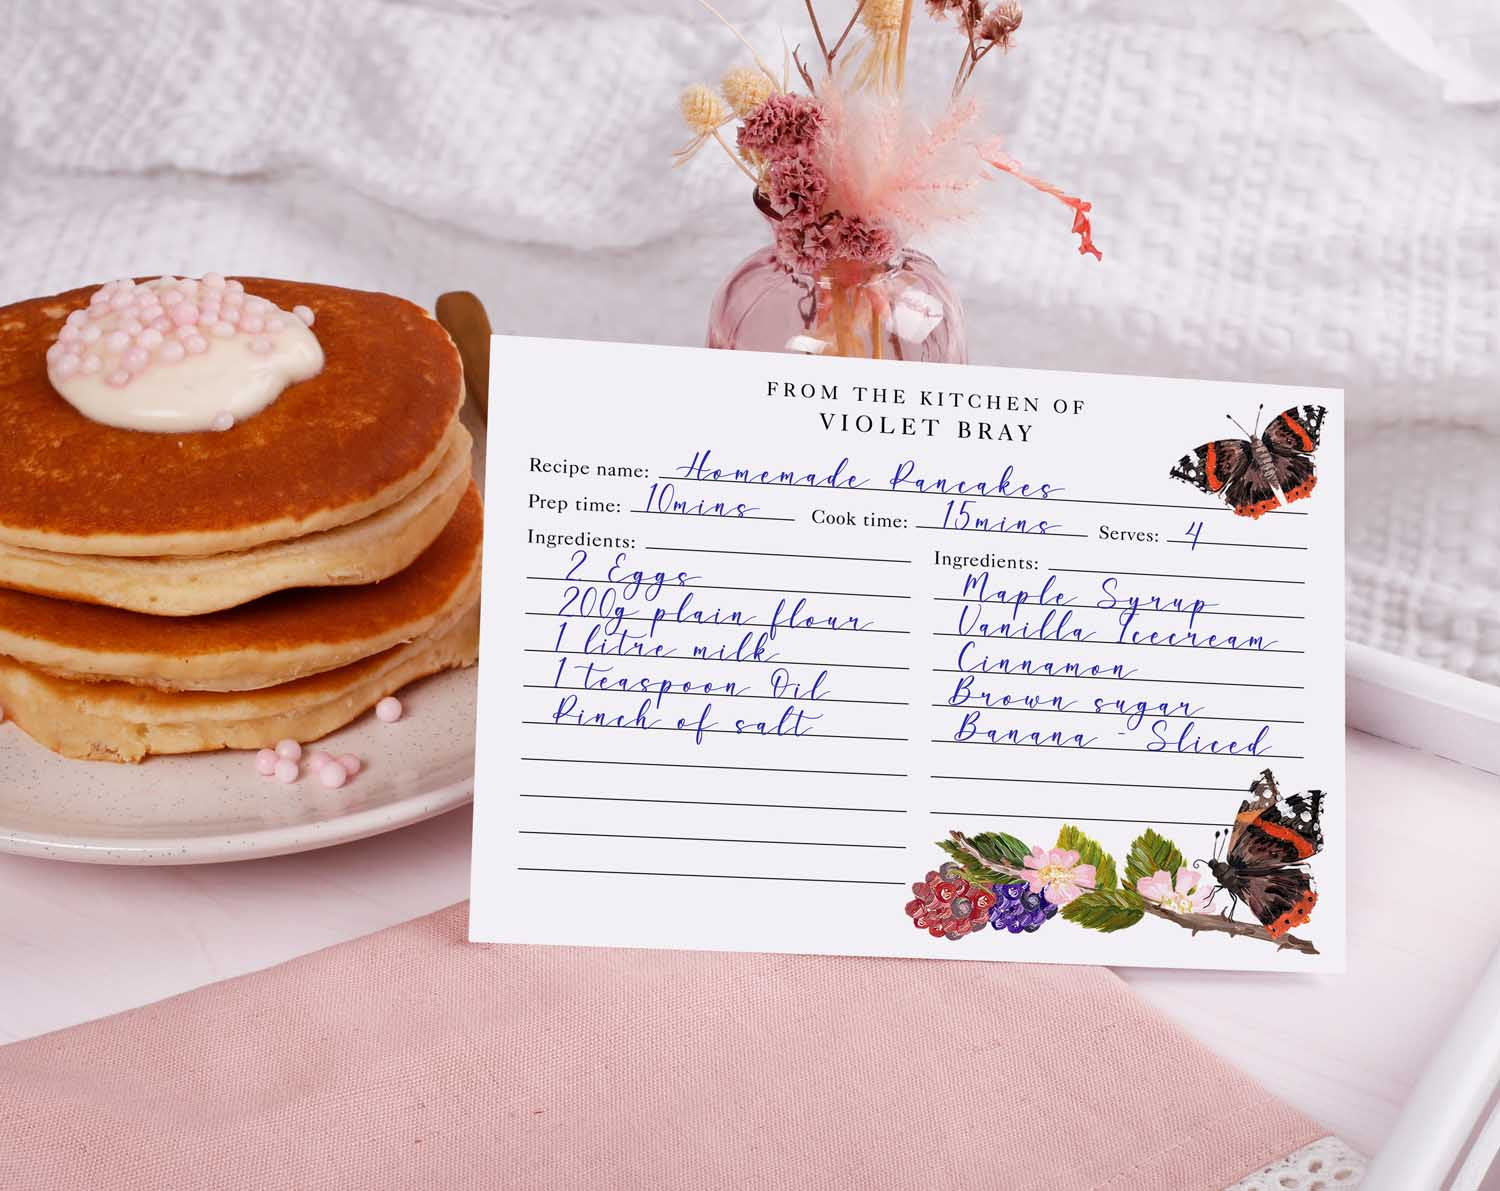 FROM THE KITCHEN OF
VIOLET BRAY
Recipe name: Homemade Pancakes
Prep time: 10mins Cook time: 15mins Serves: 4
Ingredients:
2 Eggs
200g plain flour
1 litre milk
1 teaspoon Oil
Pinch of salt
Ingredients:
Maple Syrup
Vanilla Icecream
Cinnamon
Brown sugar
Banana - Sliced